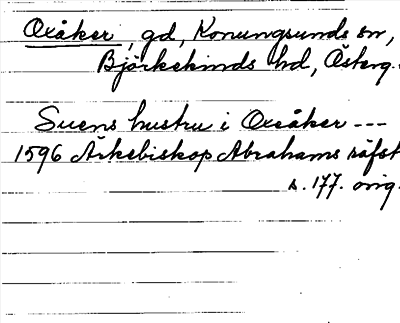 Oxåker, gd, Konungsunds sn,
Björkekinds hd, Österg.
Suens hustru i Oxeåker ---
1596 Ärkebiskop Abrahams räfst
s. 177. orig.